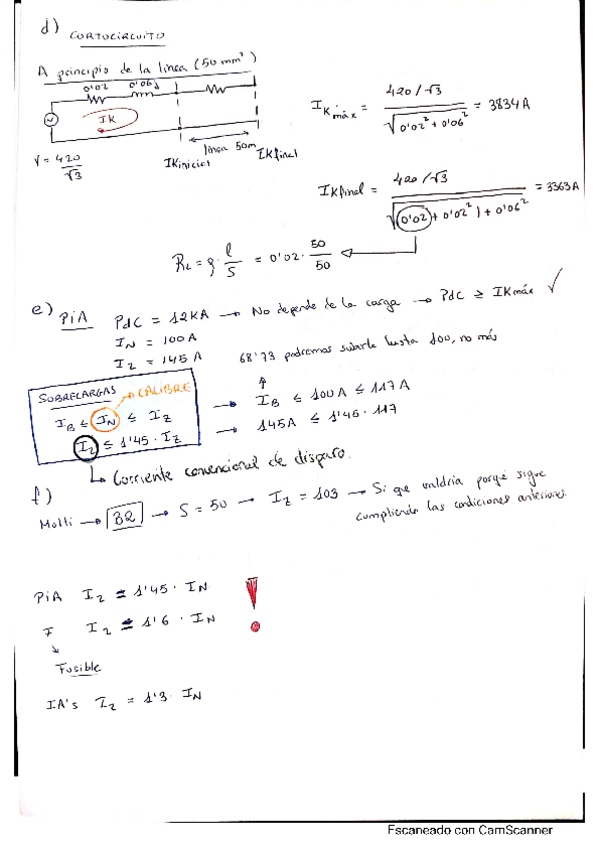 d) CORTOCIRCUITO
A principio de la línea (50 mm²)
0'02 0'06j
IK
línea 50m
V = 420/√3
IKinicial IKfinal
IKmáx = (420/√3) / √(0'02² + 0'06²) = 3834 A
IKfinal = (420/√3) / √((0'02 + 0'02²) + 0'06²) = 3363 A
RL = ρ · l/S = 0'02 · 50/50
e) PiA PdC = 12KA → No depende de la carga → PdC ≥ IKmáx ✓
IN = 100A
I2 = 145 A
68'73 podremos subirle hasta 100, no más
SOBRECARGAS → CALIBRE
IB ≤ IN ≤ IZ → IB ≤ 100A ≤ 117 A
I2 ≤ 1'45 · IZ → 145A ≤ 1'45 · 117
↳ Corriente convencional de disparo.
f)
Molli → B2 → S = 50 → IZ = 103 → Si que valdría porqué sigue
cumpliendo las condiciones anteriores.
PiA I2 = 1'45 · IN !
F I2 = 1'6 · IN
↓
Fusible
IA's I2 = 1'3 · IN
Escaneado con CamScanner